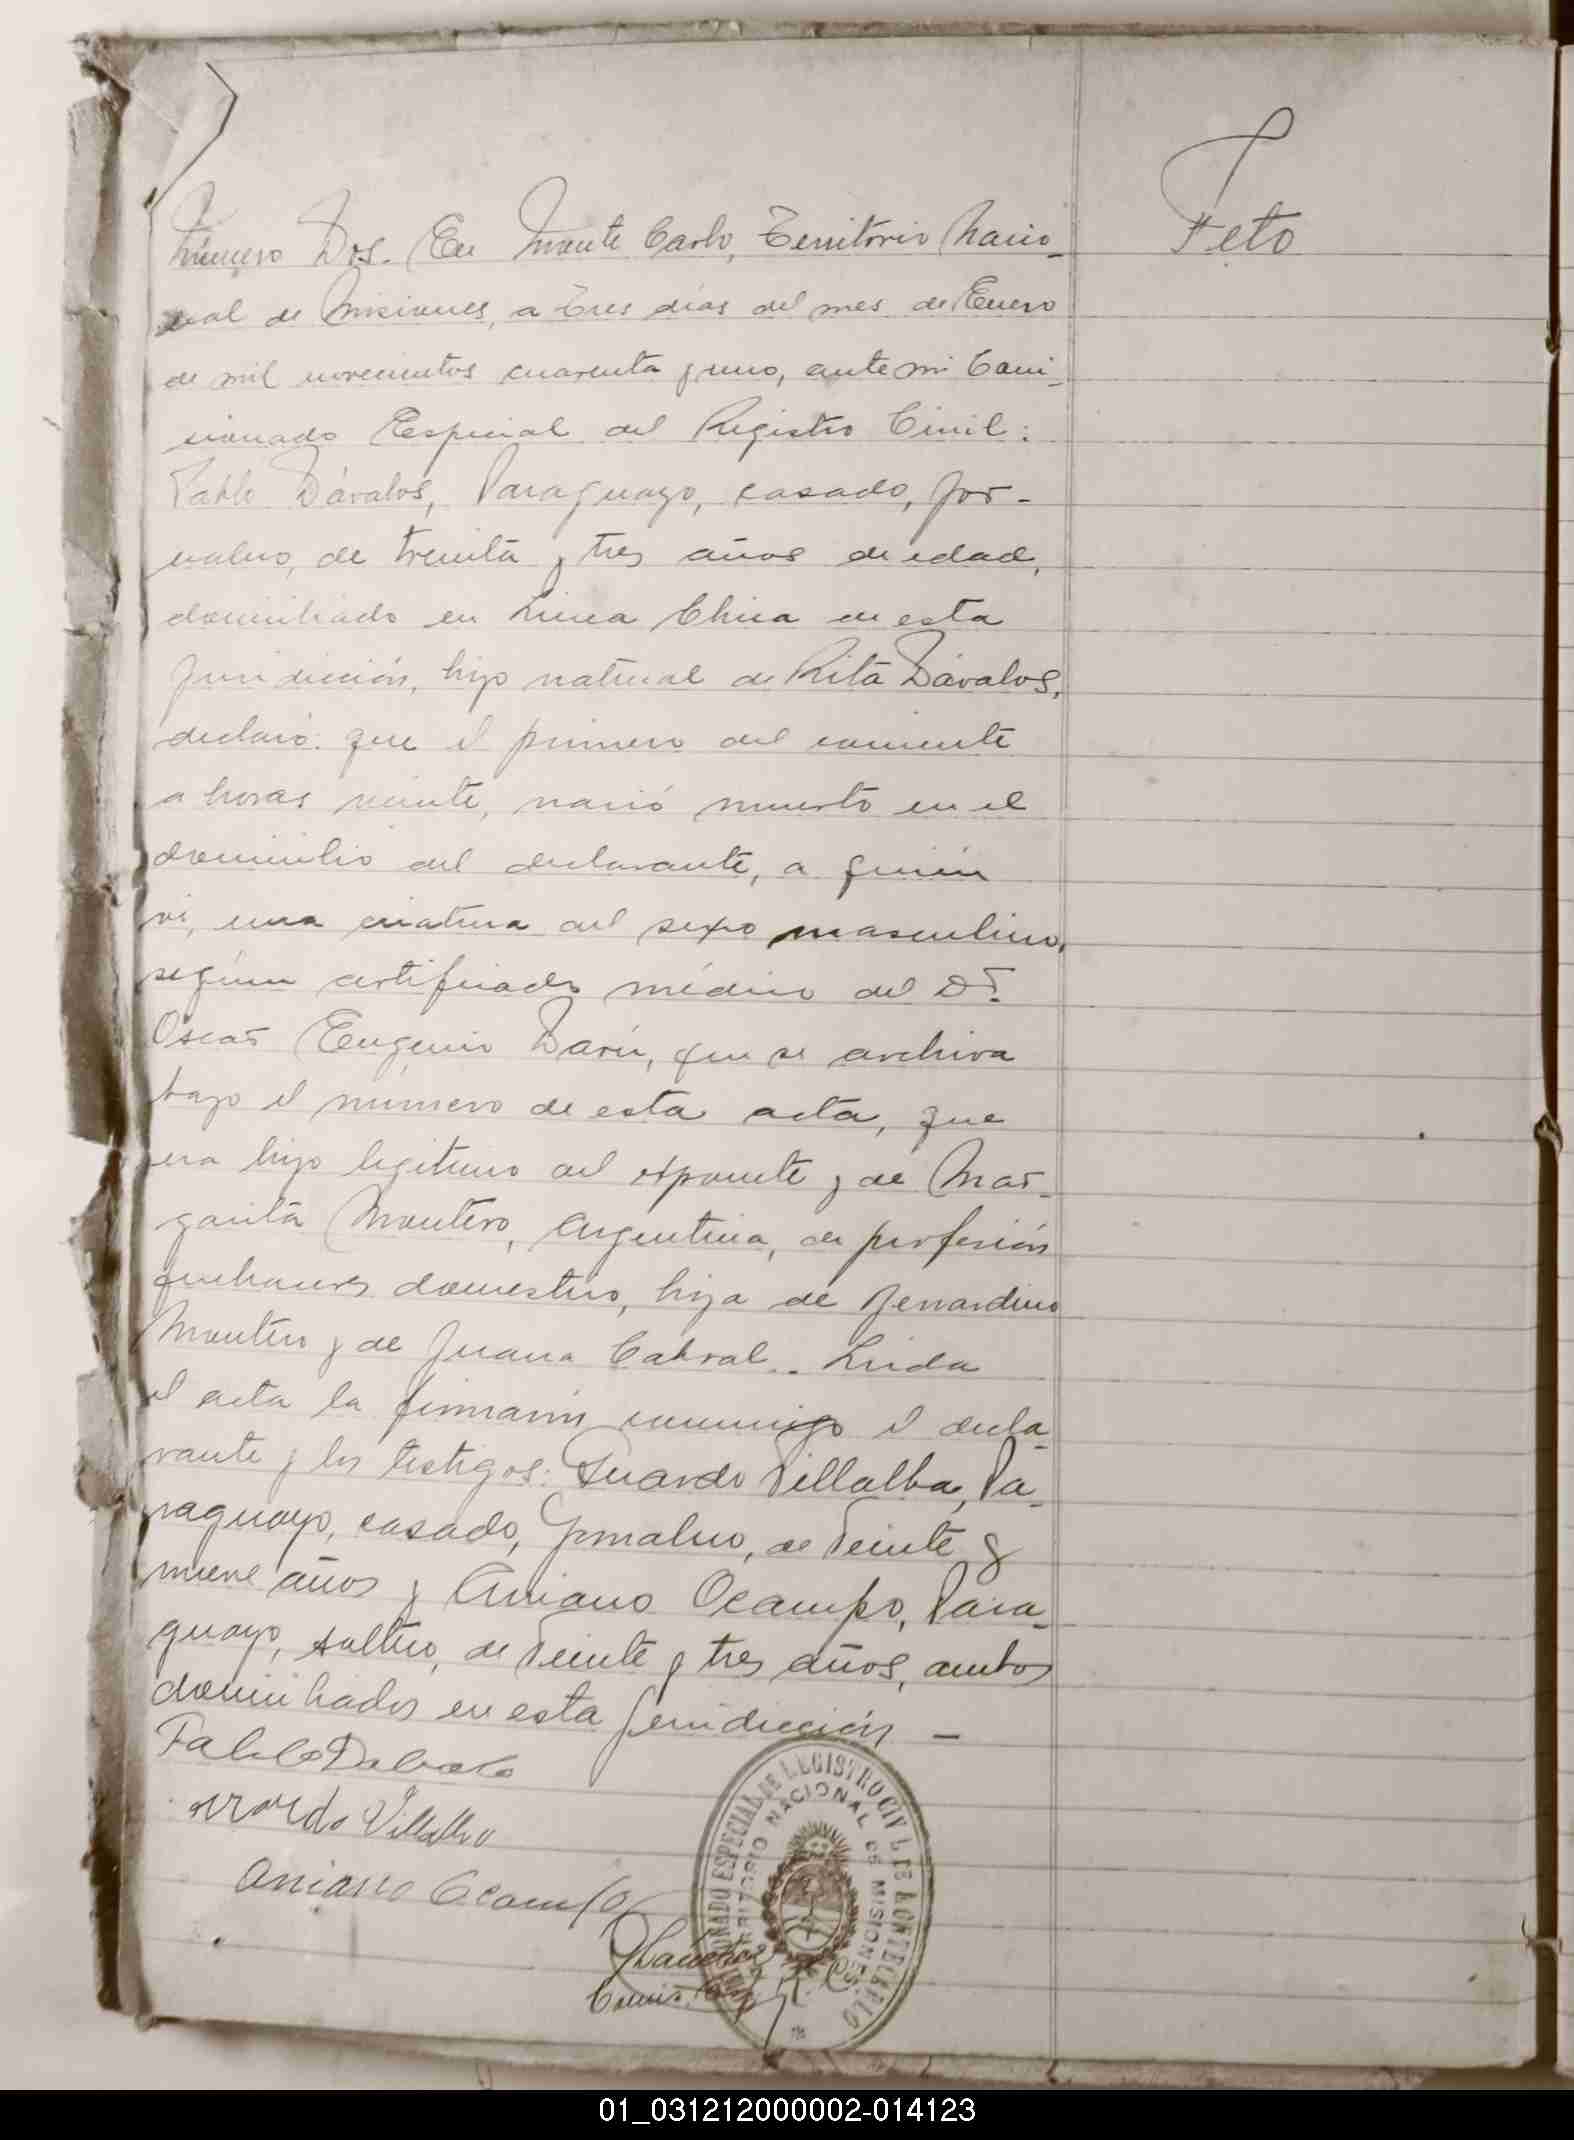 Feto
Número Dos. En Monte Carlo, Territorio Nacio-
nal de Misiones, a tres días del mes de Enero
de mil novecientos cuarenta y uno, ante mi Comi-
sionado Especial del Registro Civil:
Pablo Dávalos, Paraguayo, casado, jor-
nalero, de treinta y tres años de edad,
domiciliado en Linea Chica en esta
juridicción, hijo natural de Rita Dávalos,
declaró: que el primero del corriente
a horas veinte, nació muerto en el
domicilio del declarante, a quién
vi, una criatura del sexo masculino,
según certificado médico del Dr.
Oscar Eugenio Darú, que se archiva
bajo el número de esta acta, que
era hijo legitimo del exponente y de Mar-
garita Montero, Argentina, de profesión
quehaceres domestico, hija de Bernardino
Montero y de Juana Cabral. Leida
el acta la firmarón conmigo el decla-
rante y los testigos: Villalba, Pa-
raguayo, casado, Jornalero, de Veinte y
nueve años y Aniano Ocampo, Para-
guayo, soltero, de Veinte y tres años, ambos
domiciliados en esta juridicción —
Pablo Dabalo
Villalba
Aniano Ocampo
Comis.
ESPECIAL DE REGISTRO CIVIL DE MONTECARLO
TERRITORIO NACIONAL DE MISIONES
01_031212000002-014123